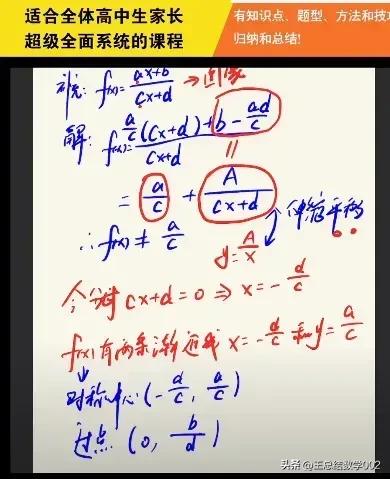 适合全体高中生家长
超级全面系统的课程
有知识点、题型、方法和技
归纳和总结!
研究: f(x)=\frac{ax+b}{cx+d} → 图像
解: f(x)=\frac{\frac{a}{c}(cx+d)+b-\frac{ad}{c}}{cx+d}
= \frac{a}{c} + \frac{A}{cx+d}
∴ f(x) ≠ \frac{a}{c} y=\frac{A}{x} 伸缩平移
令分母 cx+d=0 ⇒ x=-\frac{d}{c}
f(x)有两条渐近线 x=-\frac{d}{c} 和 y=\frac{a}{c}
对称中心(-\frac{d}{c}, \frac{a}{c})
过点 (0, \frac{b}{d})
头条 @王总结数学002